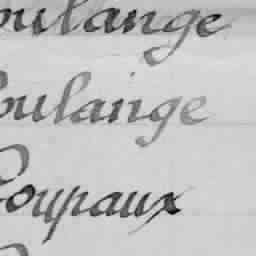 oulange
oulange
Coupaux